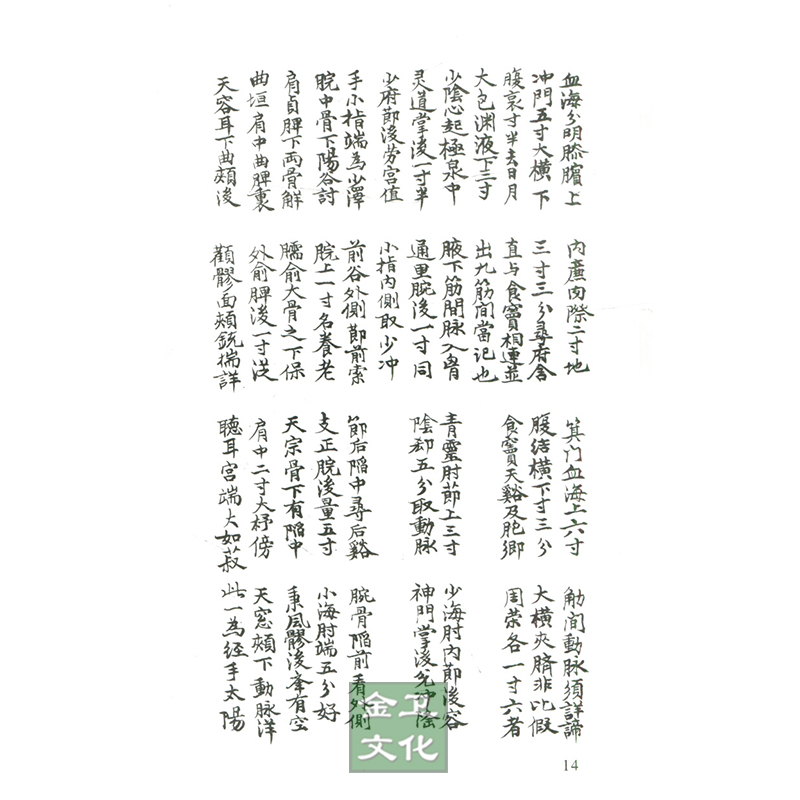 血海分明膝臏上
内廉肉際二寸地
箕门血海上六寸
觔间動脉須詳諦
冲門五寸大横下
三寸三分尋府舍
腹结横下寸三分
大横夾臍非比假
腹哀寸半去日月
直与食竇相連並
食竇天谿及胸鄉
周荣各一寸六者
大包渊液下三寸
出九筋间當记也
少陰心起極泉中
腋下筋間脉入胷
青靈肘節上三寸
少海肘内節後容
灵道掌後一寸半
通里腕後一寸同
陰郄五分取動脉
神門掌後兑冲隆
少府節後劳宫值
小指内側取少冲
手小指端為少澤
前谷外側節前索
節后陷中尋后谿
腕骨陷前看外側
脘中骨下陽谷討
脘上一寸名養老
支正脘後量五寸
小海肘端五分好
肩貞胛下兩骨解
臑俞大骨之下保
天宗骨下有陷中
秉風髎後举有空
曲垣肩中曲胛裏
外俞胛後一寸
肩中二寸大杼傍
天窓頰下動脉洋
天容耳下曲頰後
顴髎面頰銳揣詳
聽耳宫端大如菽
此一為经手太陽
金卫
文化
14